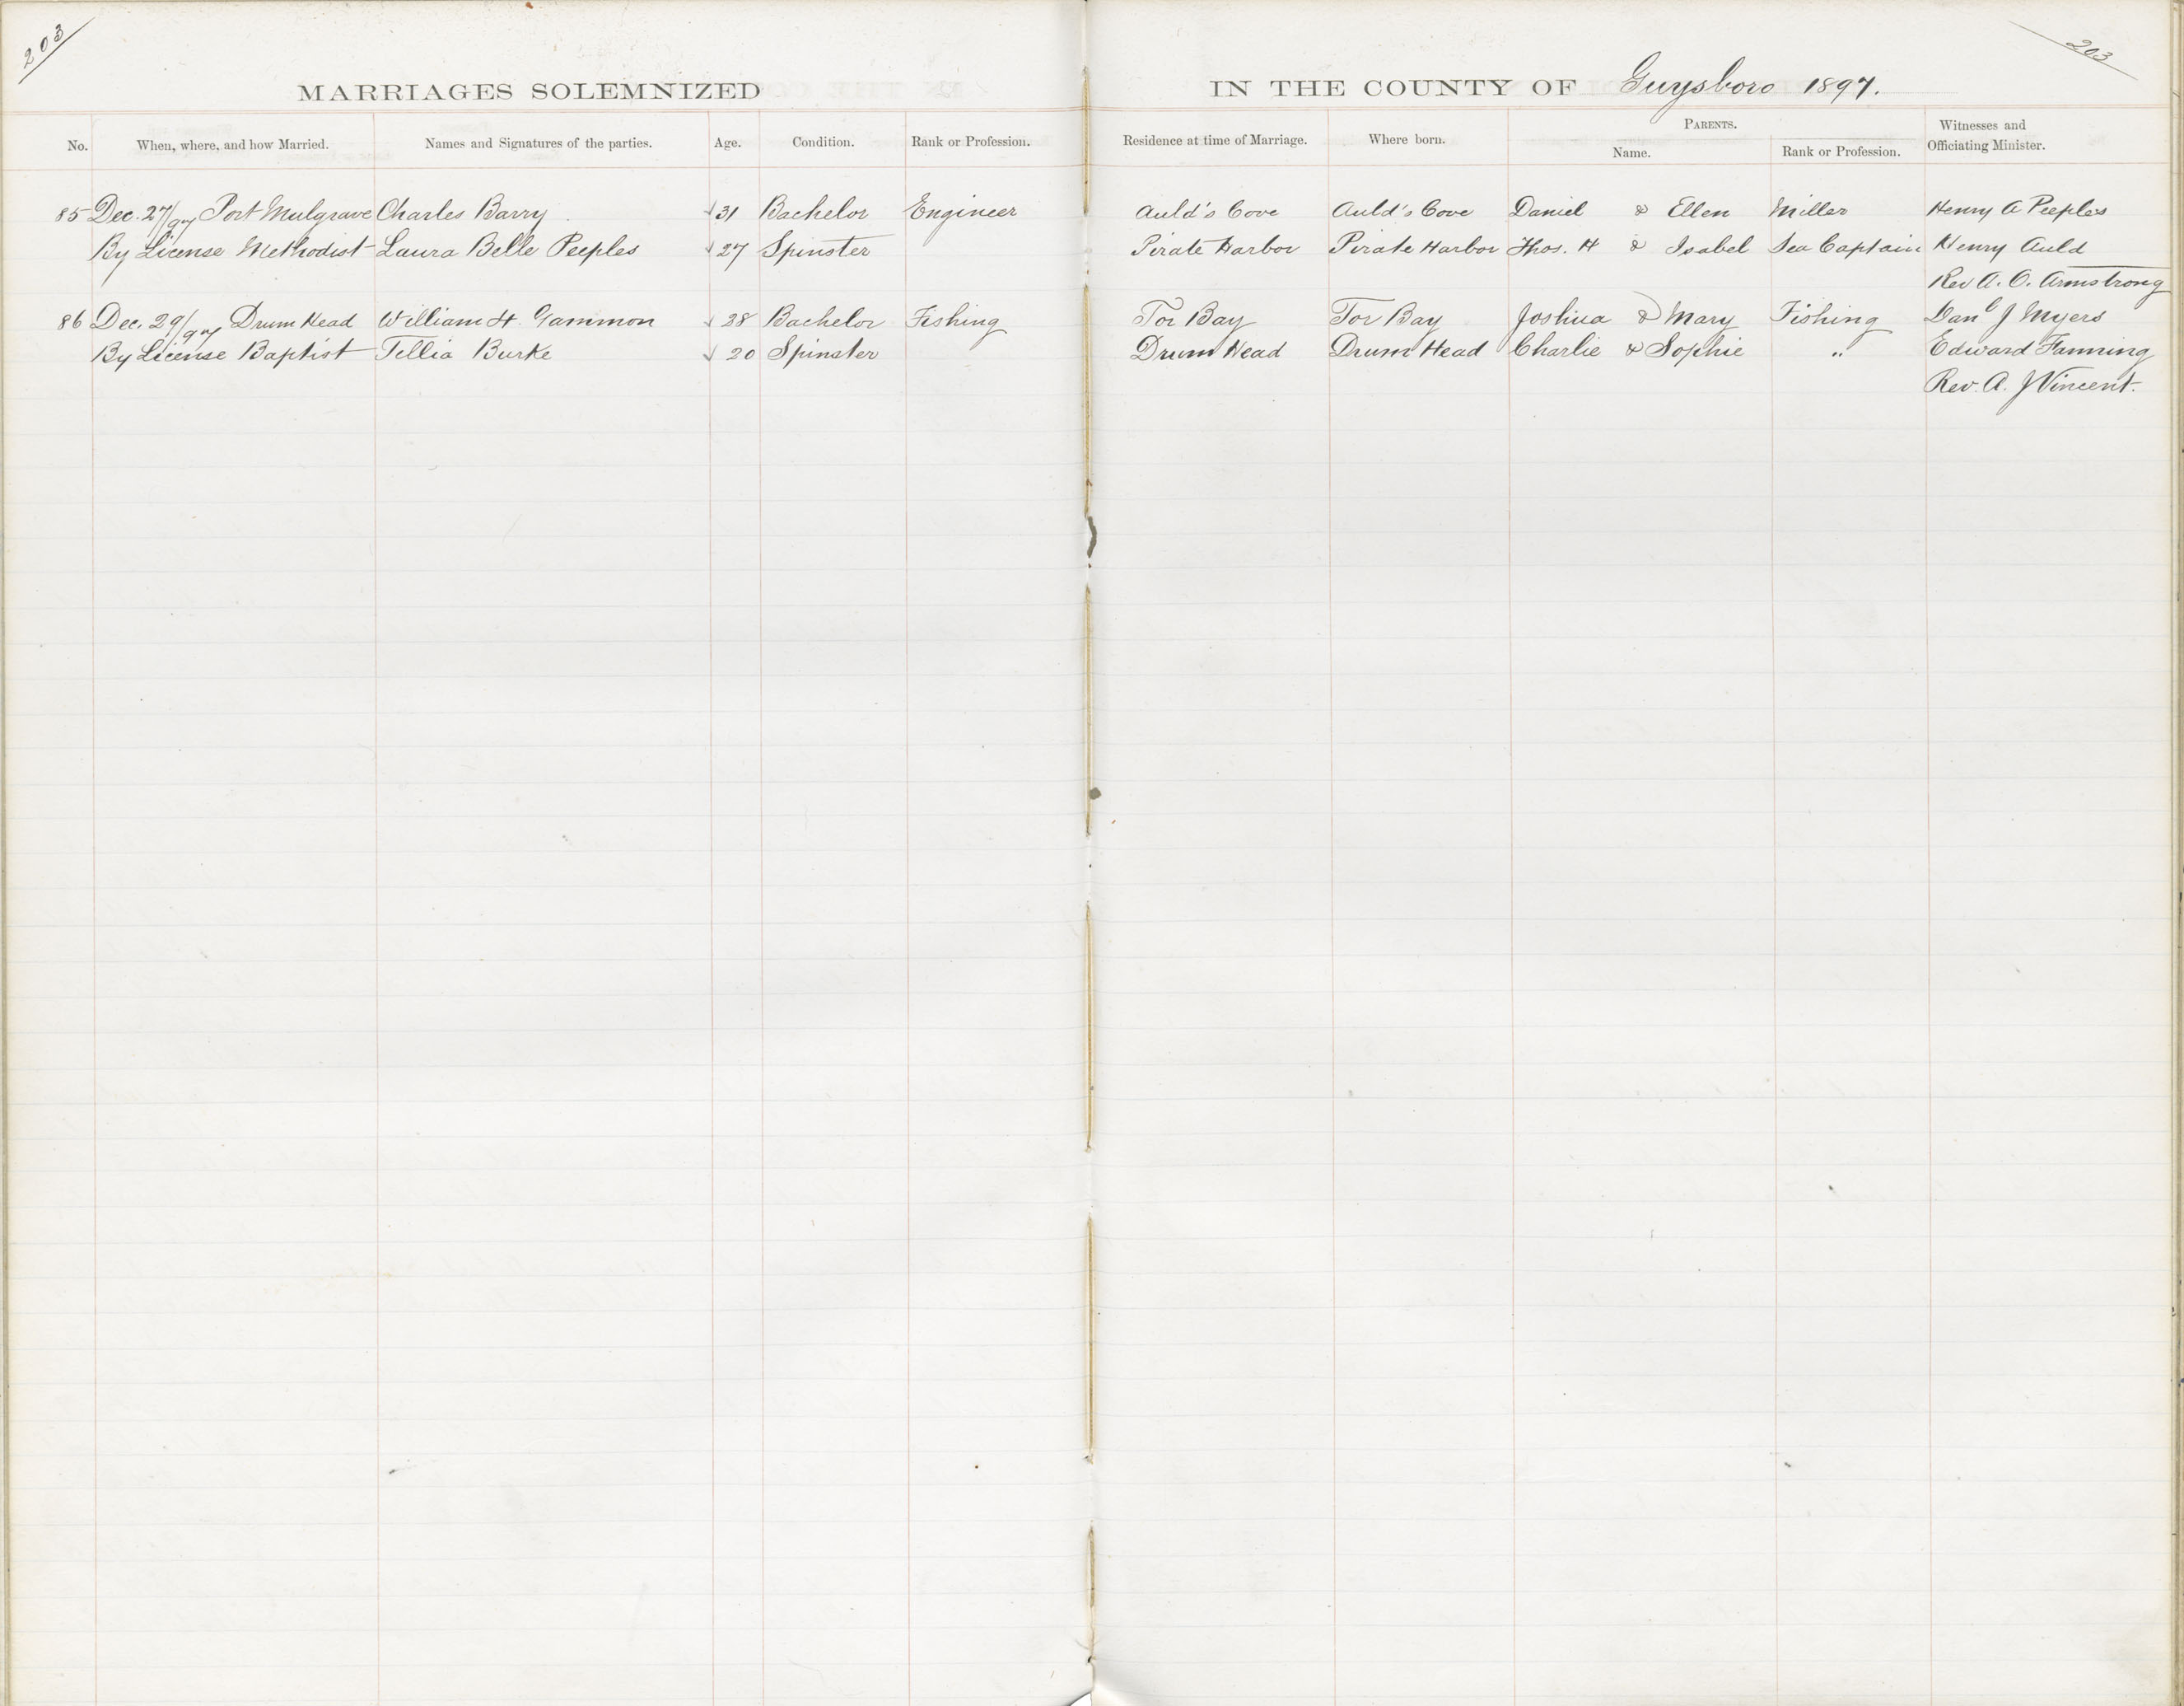 203
203
MARRIAGES SOLEMNIZED IN THE COUNTY OF Guysboro 1897.
No. When, where, and how Married. Names and Signatures of the parties. Age. Condition. Rank or Profession. Residence at time of Marriage. Where born. PARENTS. Name. Rank or Profession. Witnesses and Officiating Minister.
85 Dec. 27/97 Port Mulgrave Charles Barry 31 Bachelor Engineer Auld's Cove Auld's Cove Daniel & Ellen Miller Henry A Peeples
By License Methodist Laura Belle Peeples 27 Spinster Pirate Harbor Pirate Harbor Thos. H & Isabel Sea Captain Henry Auld
Rev A. O. Armstrong
86 Dec. 29/97 Drum Head William H. Gammon 28 Bachelor Fishing Tor Bay Tor Bay Joshua & Mary Fishing Danl J Myers
By License Baptist Tillia Burke 20 Spinster Drum Head Drum Head Charlie & Sophie " Edward Fanning
Rev. A. J Vincent.